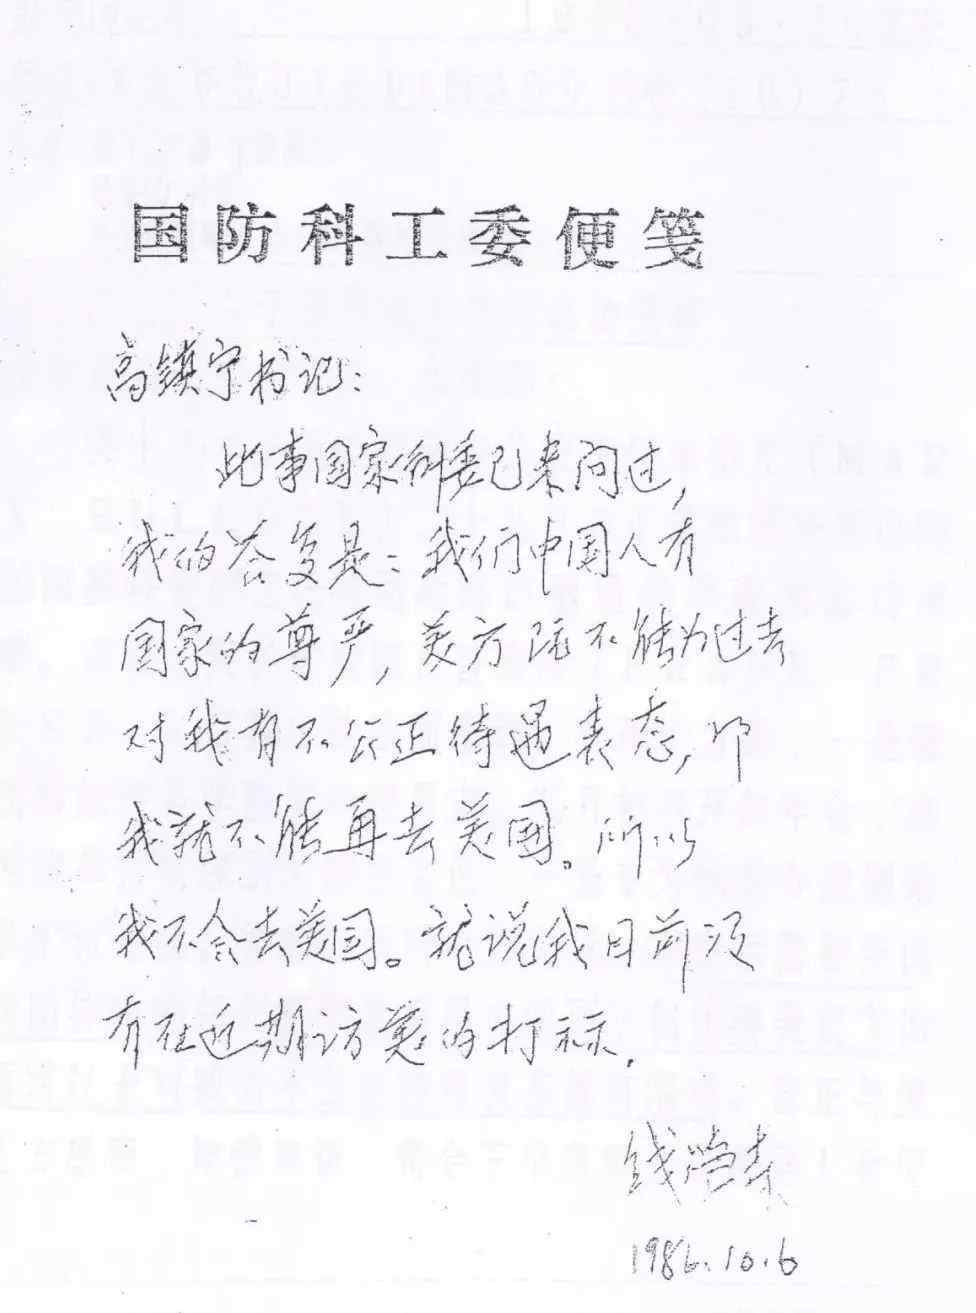 国防科工委便笺
高镇宁书记：
此事国家科委已来问过，
我的答复是：我们中国人有
国家的尊严，美方既不能为过去
对我有不公正待遇表态，那
我就不能再去美国。所以
我不会去美国。就说我目前没
有在近期访美的打祘．
钱学森
1986.10.6